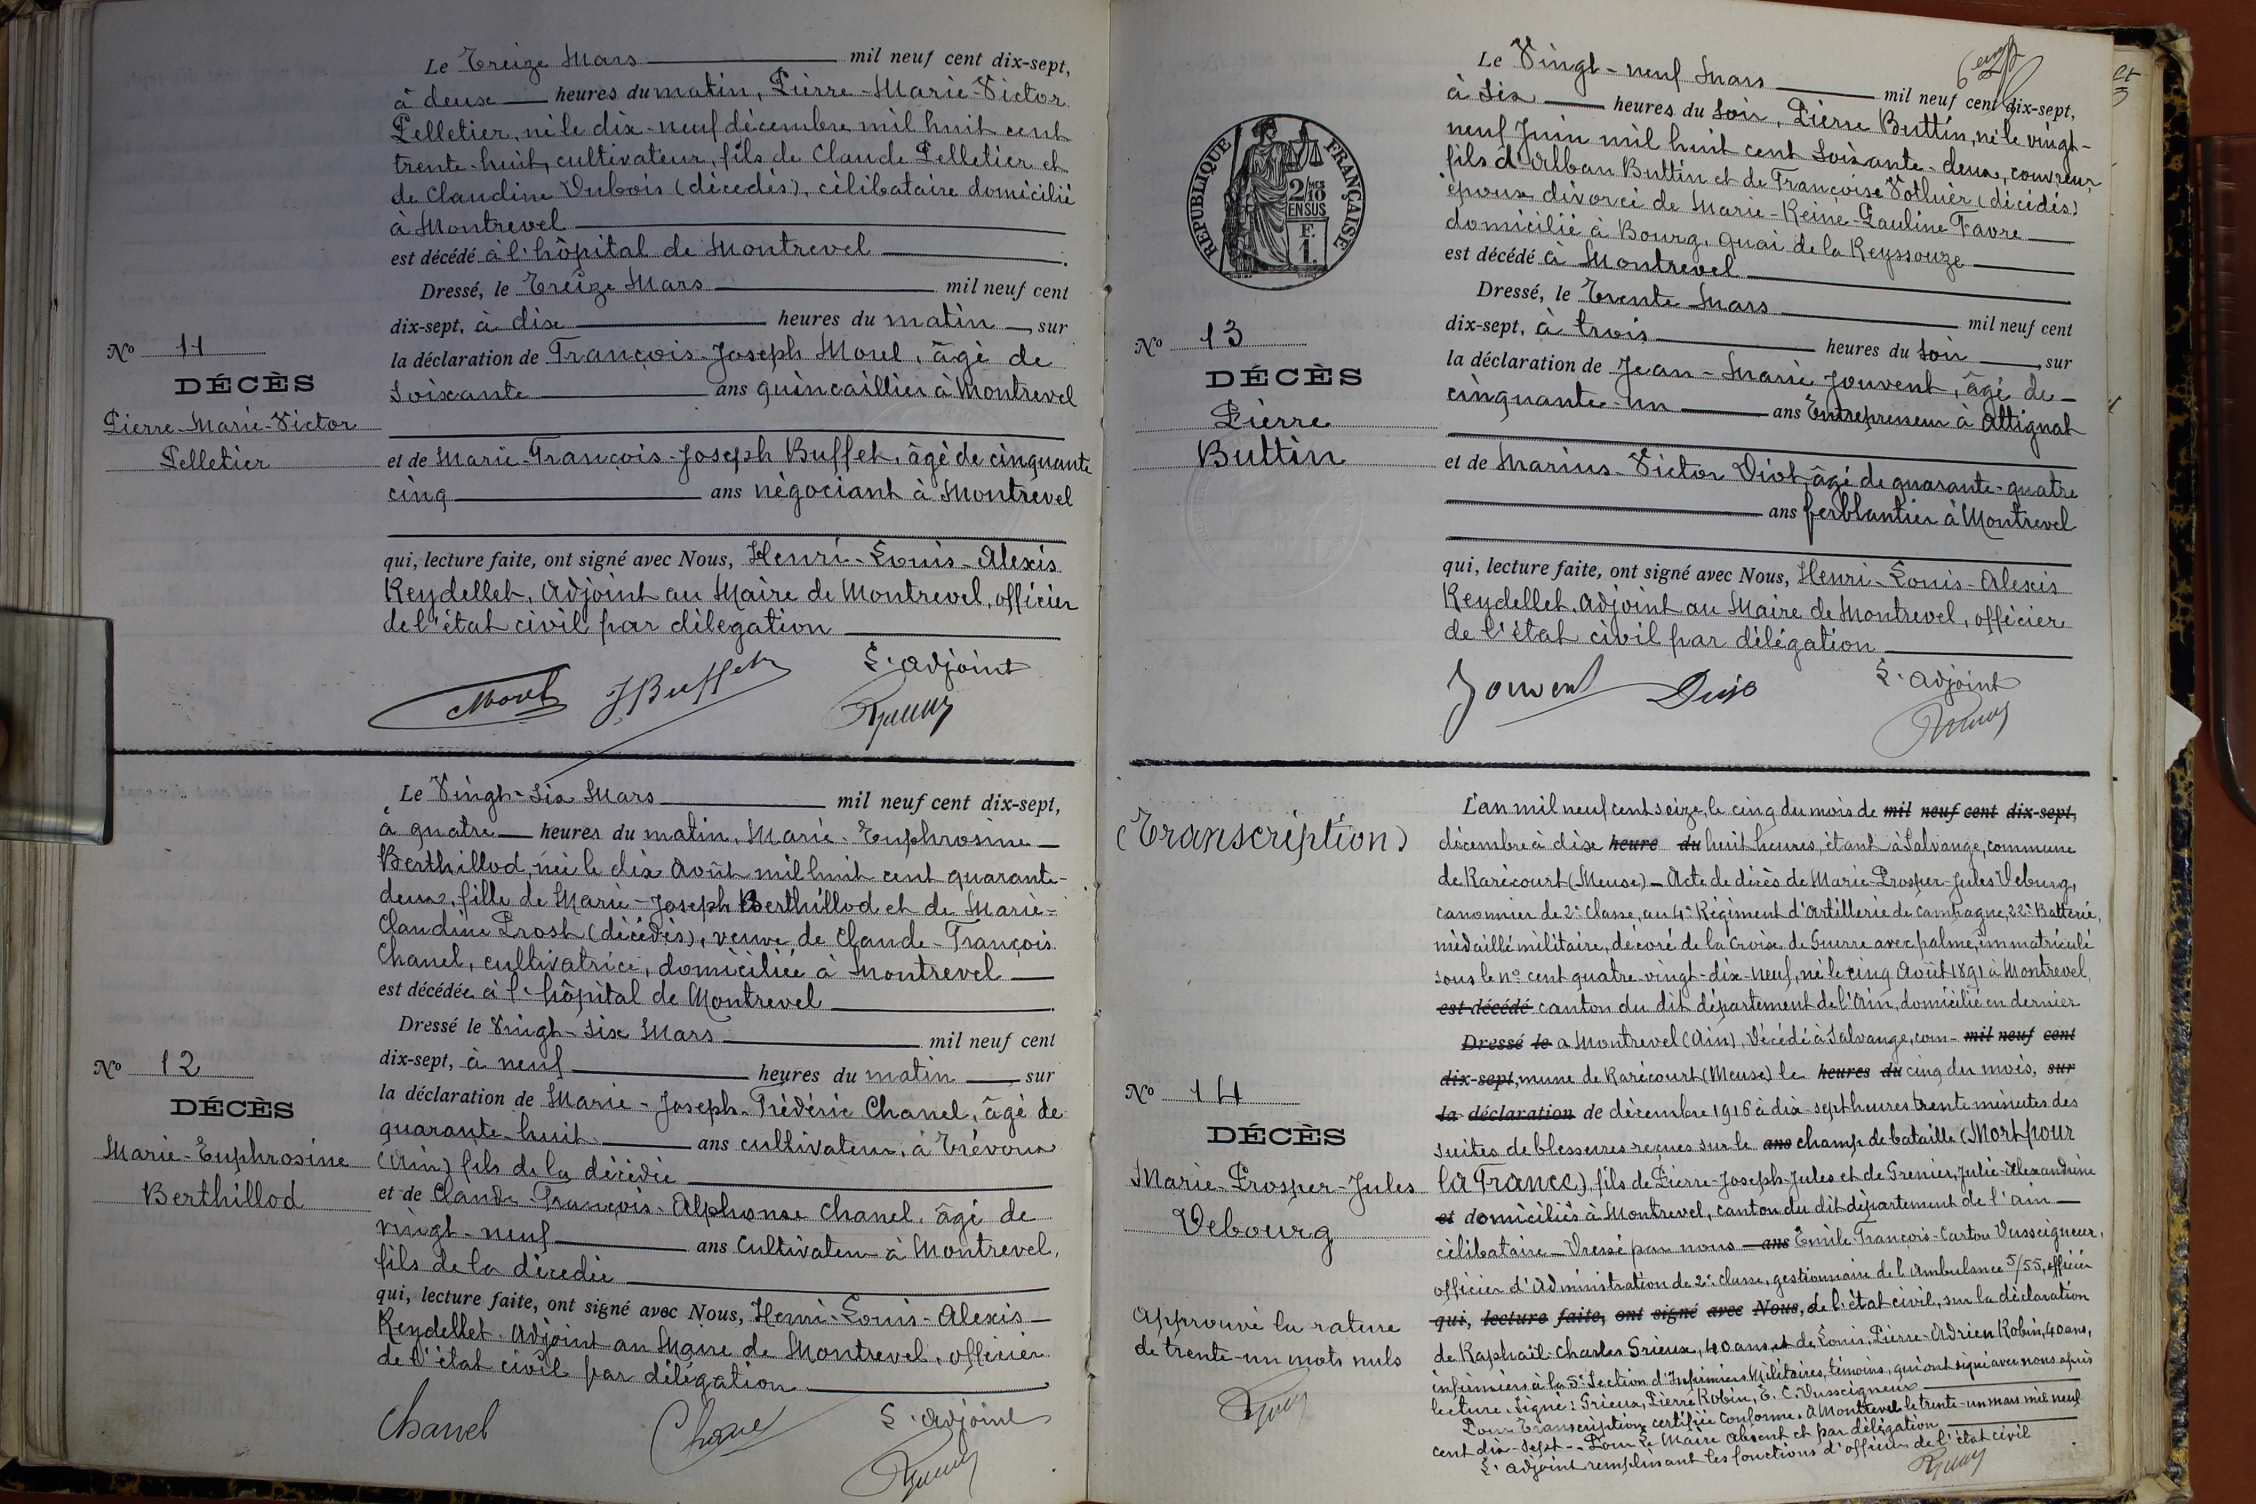 Le Treize Mars mil neuf cent dix-sept,
à deux heures du matin, Pierre-Marie-Victor
Pelletier, né le dix-neuf décembre mil huit cent
trente-huit, cultivateur, fils de Claude Pelletier et
de Claudine Dubois (décédés), célibataire domicilié
à Montrevel
est décédé à l'hôpital de Montrevel
Dressé, le Treize Mars mil neuf cent
dix-sept, à dix heures du matin, sur
la déclaration de François-Joseph Morel, âgé de
soixante ans quincaillier à Montrevel
et de Marie-François-Joseph Buffet, âgé de cinquante
cinq ans négociant à Montrevel
qui, lecture faite, ont signé avec Nous, Henri-Louis-Alexis
Reydellet, Adjoint au Maire de Montrevel, officier
de l'état civil par délégation
L'adjoint
Morel JBuffet
No 11
DÉCÈS
Pierre-Marie-Victor
Pelletier
Le Vingt-six Mars mil neuf cent dix-sept,
à quatre heures du matin, Marie-Euphrosine
Berthillod, née le dix Août mil huit cent quarante-
deux, fille de Marie-Joseph Berthillod et de Marie-
Claudine Prost (décédés), veuve de Claude-François
Chanel, cultivatrice, domiciliée à Montrevel
est décédée à l'hôpital de Montrevel
Dressé le Vingt-six Mars mil neuf cent
dix-sept, à neuf heures du matin sur
la déclaration de Marie-Joseph-Frédéric Chanel, âgé de
quarante-huit ans cultivateur, à Trévoux
(Ain) fils de la décédée
et de Claude-François-Alphonse Chanel, âgé de
vingt-neuf ans cultivateur à Montrevel,
fils de la décédée
qui, lecture faite, ont signé avec Nous, Henri-Louis-Alexis
Reydellet, Adjoint au Maire de Montrevel, officier
de l'état civil par délégation
Chanel Chanel L'adjoint
No 12
DÉCÈS
Marie-Euphrosine
Berthillod
Le Vingt-neuf Mars mil neuf cent dix-sept,
à six heures du soir, Pierre Buttin, né le vingt-
neuf Juin mil huit cent soixante-deux, couvreur,
fils d'Alban Buttin et de Françoise Vothier (décédés)
époux divorcé de Marie-Reine-Pauline Favre
domicilié à Bourg, quai de la Reyssouze
est décédé à Montrevel
Dressé, le Trente Mars mil neuf cent
dix-sept, à trois heures du soir, sur
la déclaration de Jean-Marie Jouvent, âgé de
cinquante-un ans Entrepreneur à Attignat
et de Marius-Victor Diot, âgé de quarante-quatre
ans ferblantier à Montrevel
qui, lecture faite, ont signé avec Nous, Henri-Louis-Alexis
Reydellet, Adjoint au Maire de Montrevel, officier
de l'état civil par délégation
Jouvent L'adjoint
RÉPUBLIQUE FRANÇAISE
2/10 MES
EN SUS
F.
1.
No 13
DÉCÈS
Pierre
Buttin
(Transcription)
L'an mil neuf cent seize, le cinq du mois de mil neuf cent dix-sept,
décembre à dix heure du huit heures, étant à Salvange, commune
de Rarécourt (Meuse) – Acte de décès de Marie-Prosper-Jules Debourg,
canonnier de 2e Classe, au 4e Régiment d'Artillerie de campagne, 22e Batterie,
médaillé militaire, décoré de la Croix de Guerre avec palme, immatriculé
sous le no cent quatre-vingt-dix-neuf, né le cinq Août 1891 à Montrevel,
est décédé canton du dit département de l'Ain, domicilié en dernier
Dressé le a Montrevel (Ain), Décédé à Salvange, com- mil neuf cent
dix-sept, mune de Rarécourt (Meuse) le heures du cinq du mois, sur
la déclaration de décembre 1916 à dix-sept heures trente minutes des
suites de blessures reçues sur le ans champ de bataille (Mort pour
la France), fils de Pierre-Joseph-Jules et de Grenier, Julie-Alexandrine
et domiciliés à Montrevel, canton du dit département de l'ain
célibataire – Dressé par nous ans Emile François-Carton Dusseigneur,
officier d'Administration de 2e classe, gestionnaire de l'Ambulance 5/55, officier
qui, lecture faite, ont signé avec Nous, de l'état civil, sur la déclaration
de Raphaël-Charles Grieux, 40 ans, et de Louis-Pierre-Adrien Robin, 40 ans,
infirmiers à la 5e Section d'Infirmiers Militaires, témoins, qui ont signé avec nous après
lecture. Signé: Grieux, Pierre Robin, E. C. Dusseigneur
Pour Transcription certifiée conforme. A Montrevel le trente-un mars mil neuf
cent dix-sept – Pour le Maire Absent et par délégation
L'adjoint remplissant les fonctions d'officier de l'état civil
No 14
DÉCÈS
Marie-Prosper-Jules
Debourg
Approuvé la rature
de trente-un mots nuls